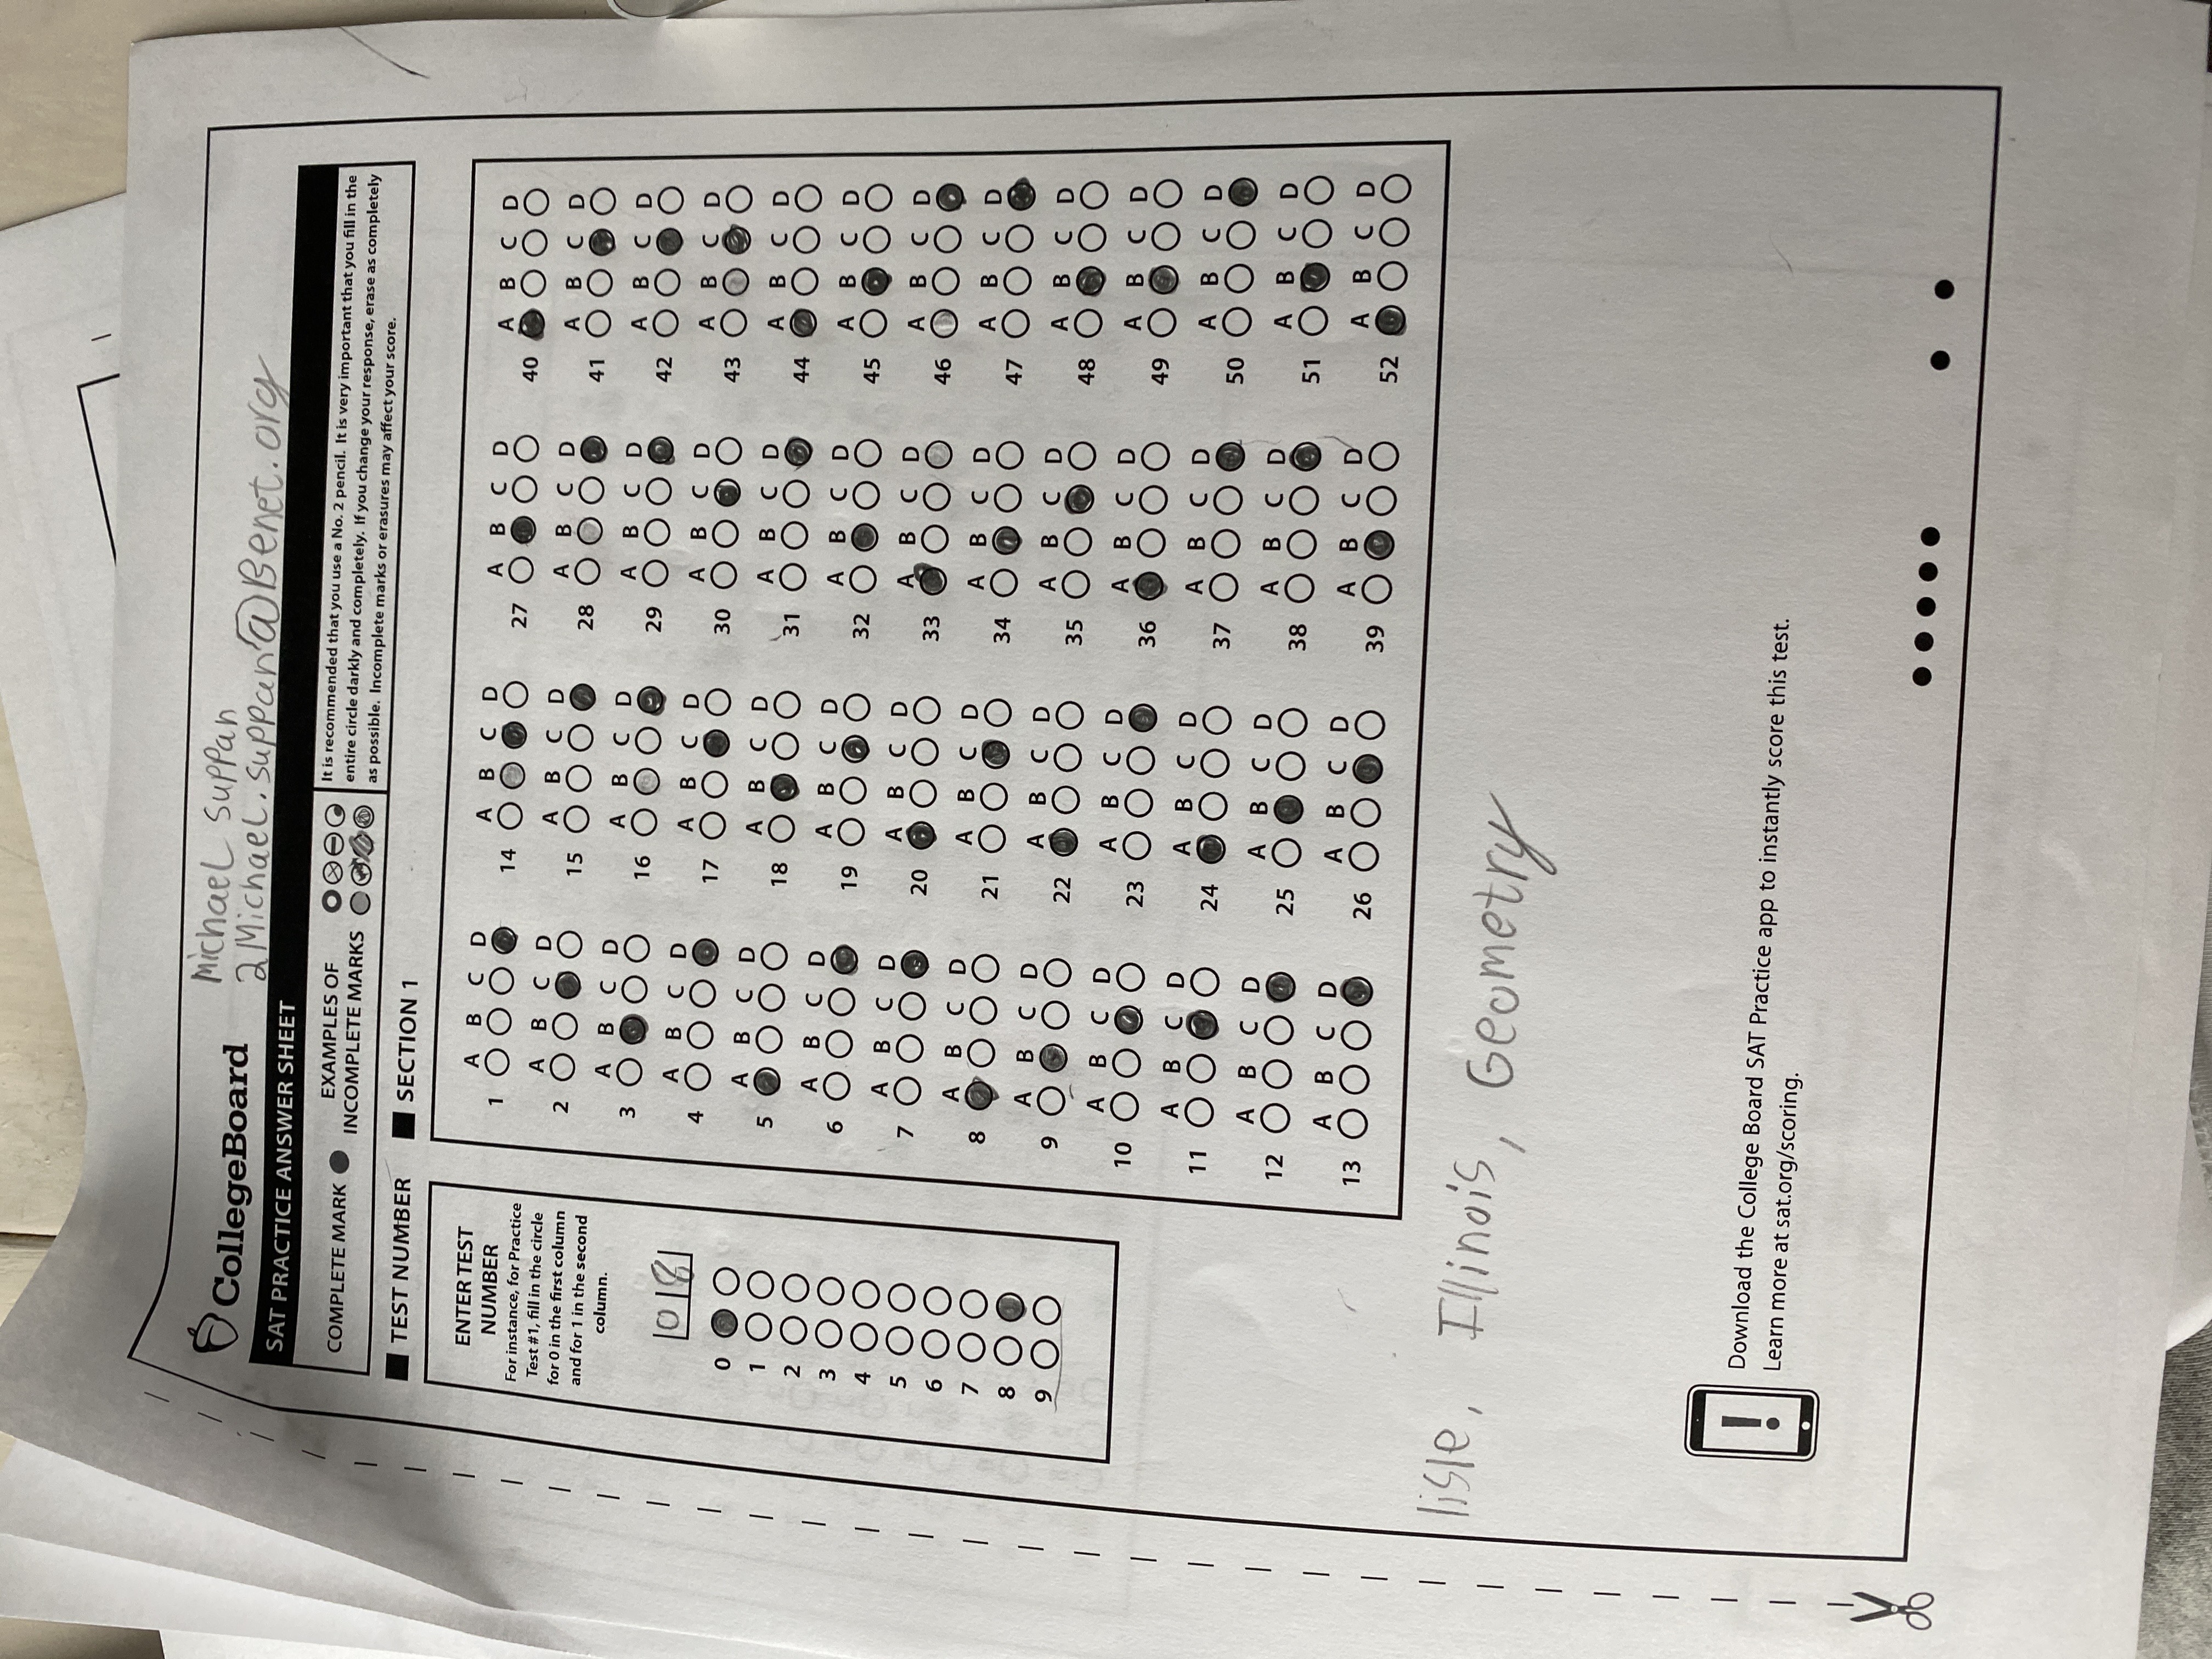 Michael Suppan
CollegeBoard
2Michael.suppan@Benet.org
SAT PRACTICE ANSWER SHEET
COMPLETE MARK
EXAMPLES OF
INCOMPLETE MARKS
It is recommended that you use a No. 2 pencil. It is very important that you fill in the
entire circle darkly and completely. If you change your response, erase as completely
as possible. Incomplete marks or erasures may affect your score.
TEST NUMBER
SECTION 1
ENTER TEST
NUMBER
For instance, for Practice
Test #1, fill in the circle
for 0 in the first column
and for 1 in the second
column.
0 8
0
1
2
3
4
5
6
7
8
9
A B C D
1
A B C D
2
A B C D
3
A B C D
4
A B C D
5
A B C D
6
A B C D
7
A B C D
8
A B C D
9
A B C D
10
A B C D
11
A B C D
12
A B C D
13
A B C D
14
A B C D
15
A B C D
16
A B C D
17
A B C D
18
A B C D
19
A B C D
20
A B C D
21
A B C D
22
A B C D
23
A B C D
24
A B C D
25
A B C D
26
A B C D
27
A B C D
28
A B C D
29
A B C D
30
A B C D
31
A B C D
32
A B C D
33
A B C D
34
A B C D
35
A B C D
36
A B C D
37
A B C D
38
A B C D
39
A B C D
40
A B C D
41
A B C D
42
A B C D
43
A B C D
44
A B C D
45
A B C D
46
A B C D
47
A B C D
48
A B C D
49
A B C D
50
A B C D
51
A B C D
52
lisle, Illinois, Geometry
!
Download the College Board SAT Practice app to instantly score this test.
Learn more at sat.org/scoring.